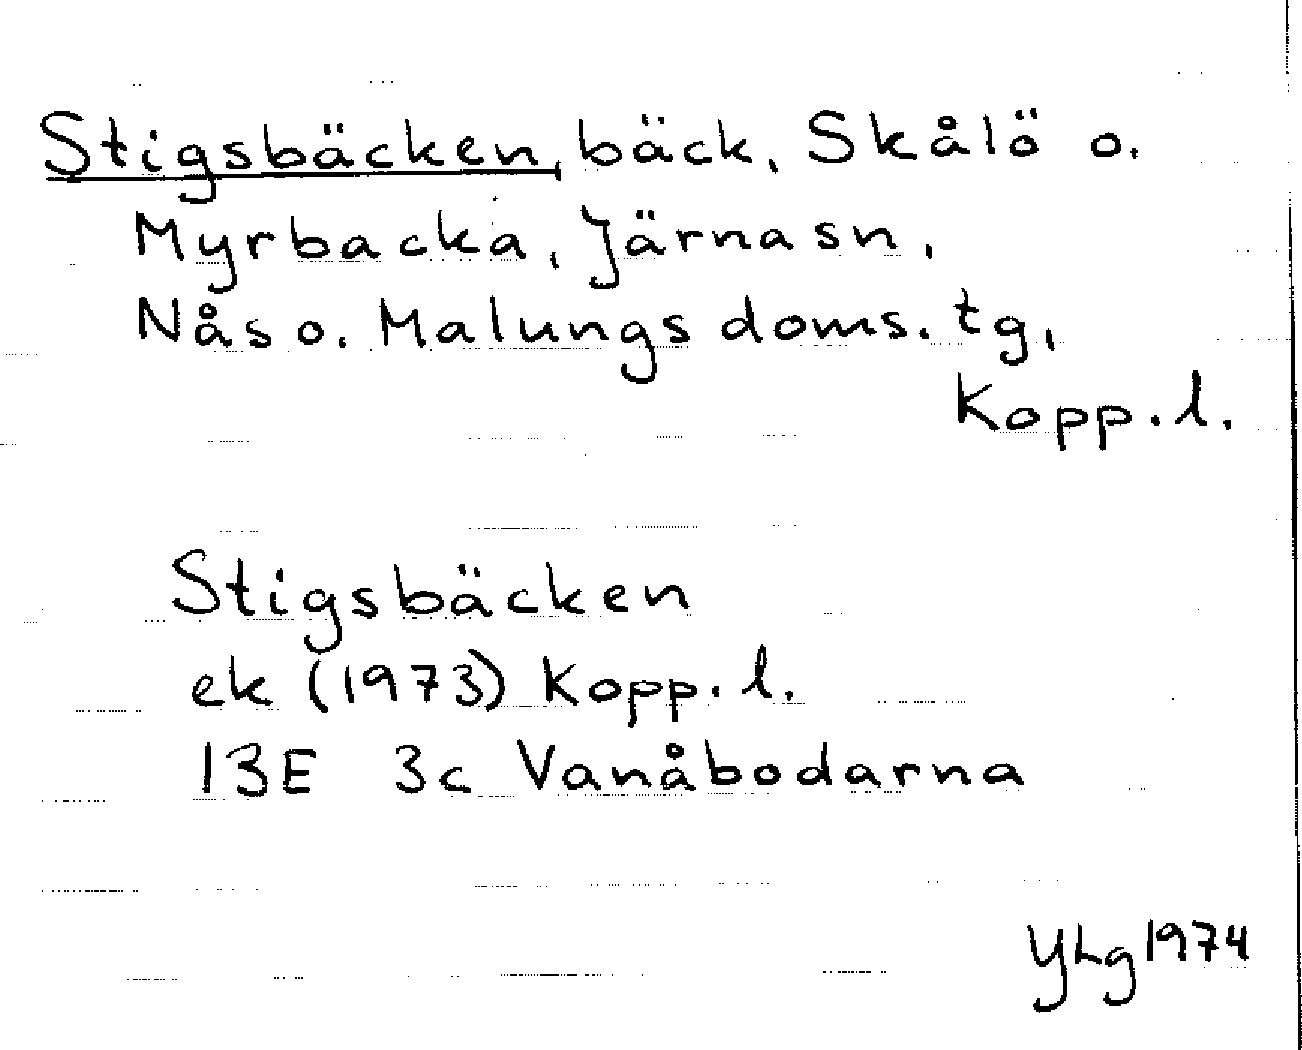 Stigsbäcken, bäck, Skålö o.
Myrbacka, Järnasn,
Nås o. Malungs doms. tg,
Kopp. l.
Stigsbäcken
ek (1973) Kopp. l.
13E 3c Vanåbodarna
YLg 1974